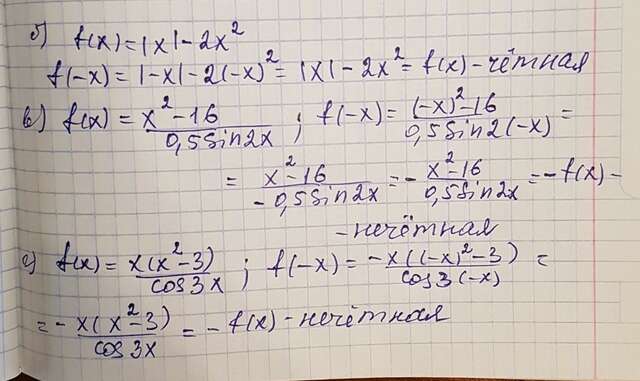 б) f(x) = |x| - 2x²
f(-x) = |-x| - 2(-x)² = |x| - 2x² = f(x) - чётная
в) f(x) = (x² - 16)/(0,5 sin 2x) ; f(-x) = ((-x)² - 16)/(0,5 sin 2(-x)) =
= (x² - 16)/(-0,5 sin 2x) = - (x² - 16)/(0,5 sin 2x) = - f(x) -
- нечётная
г) f(x) = x(x² - 3)/cos 3x ; f(-x) = -x((-x)² - 3)/cos 3(-x) =
= - x(x² - 3)/cos 3x = - f(x) - нечётная